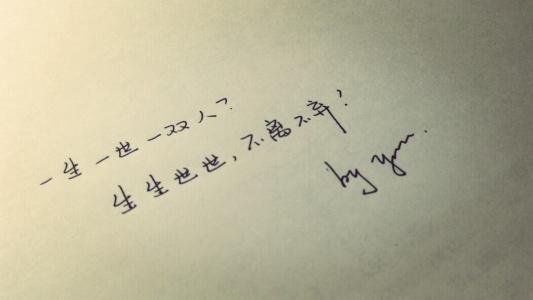 一生一世一双人？
生生世世，不离不弃？
by yun.